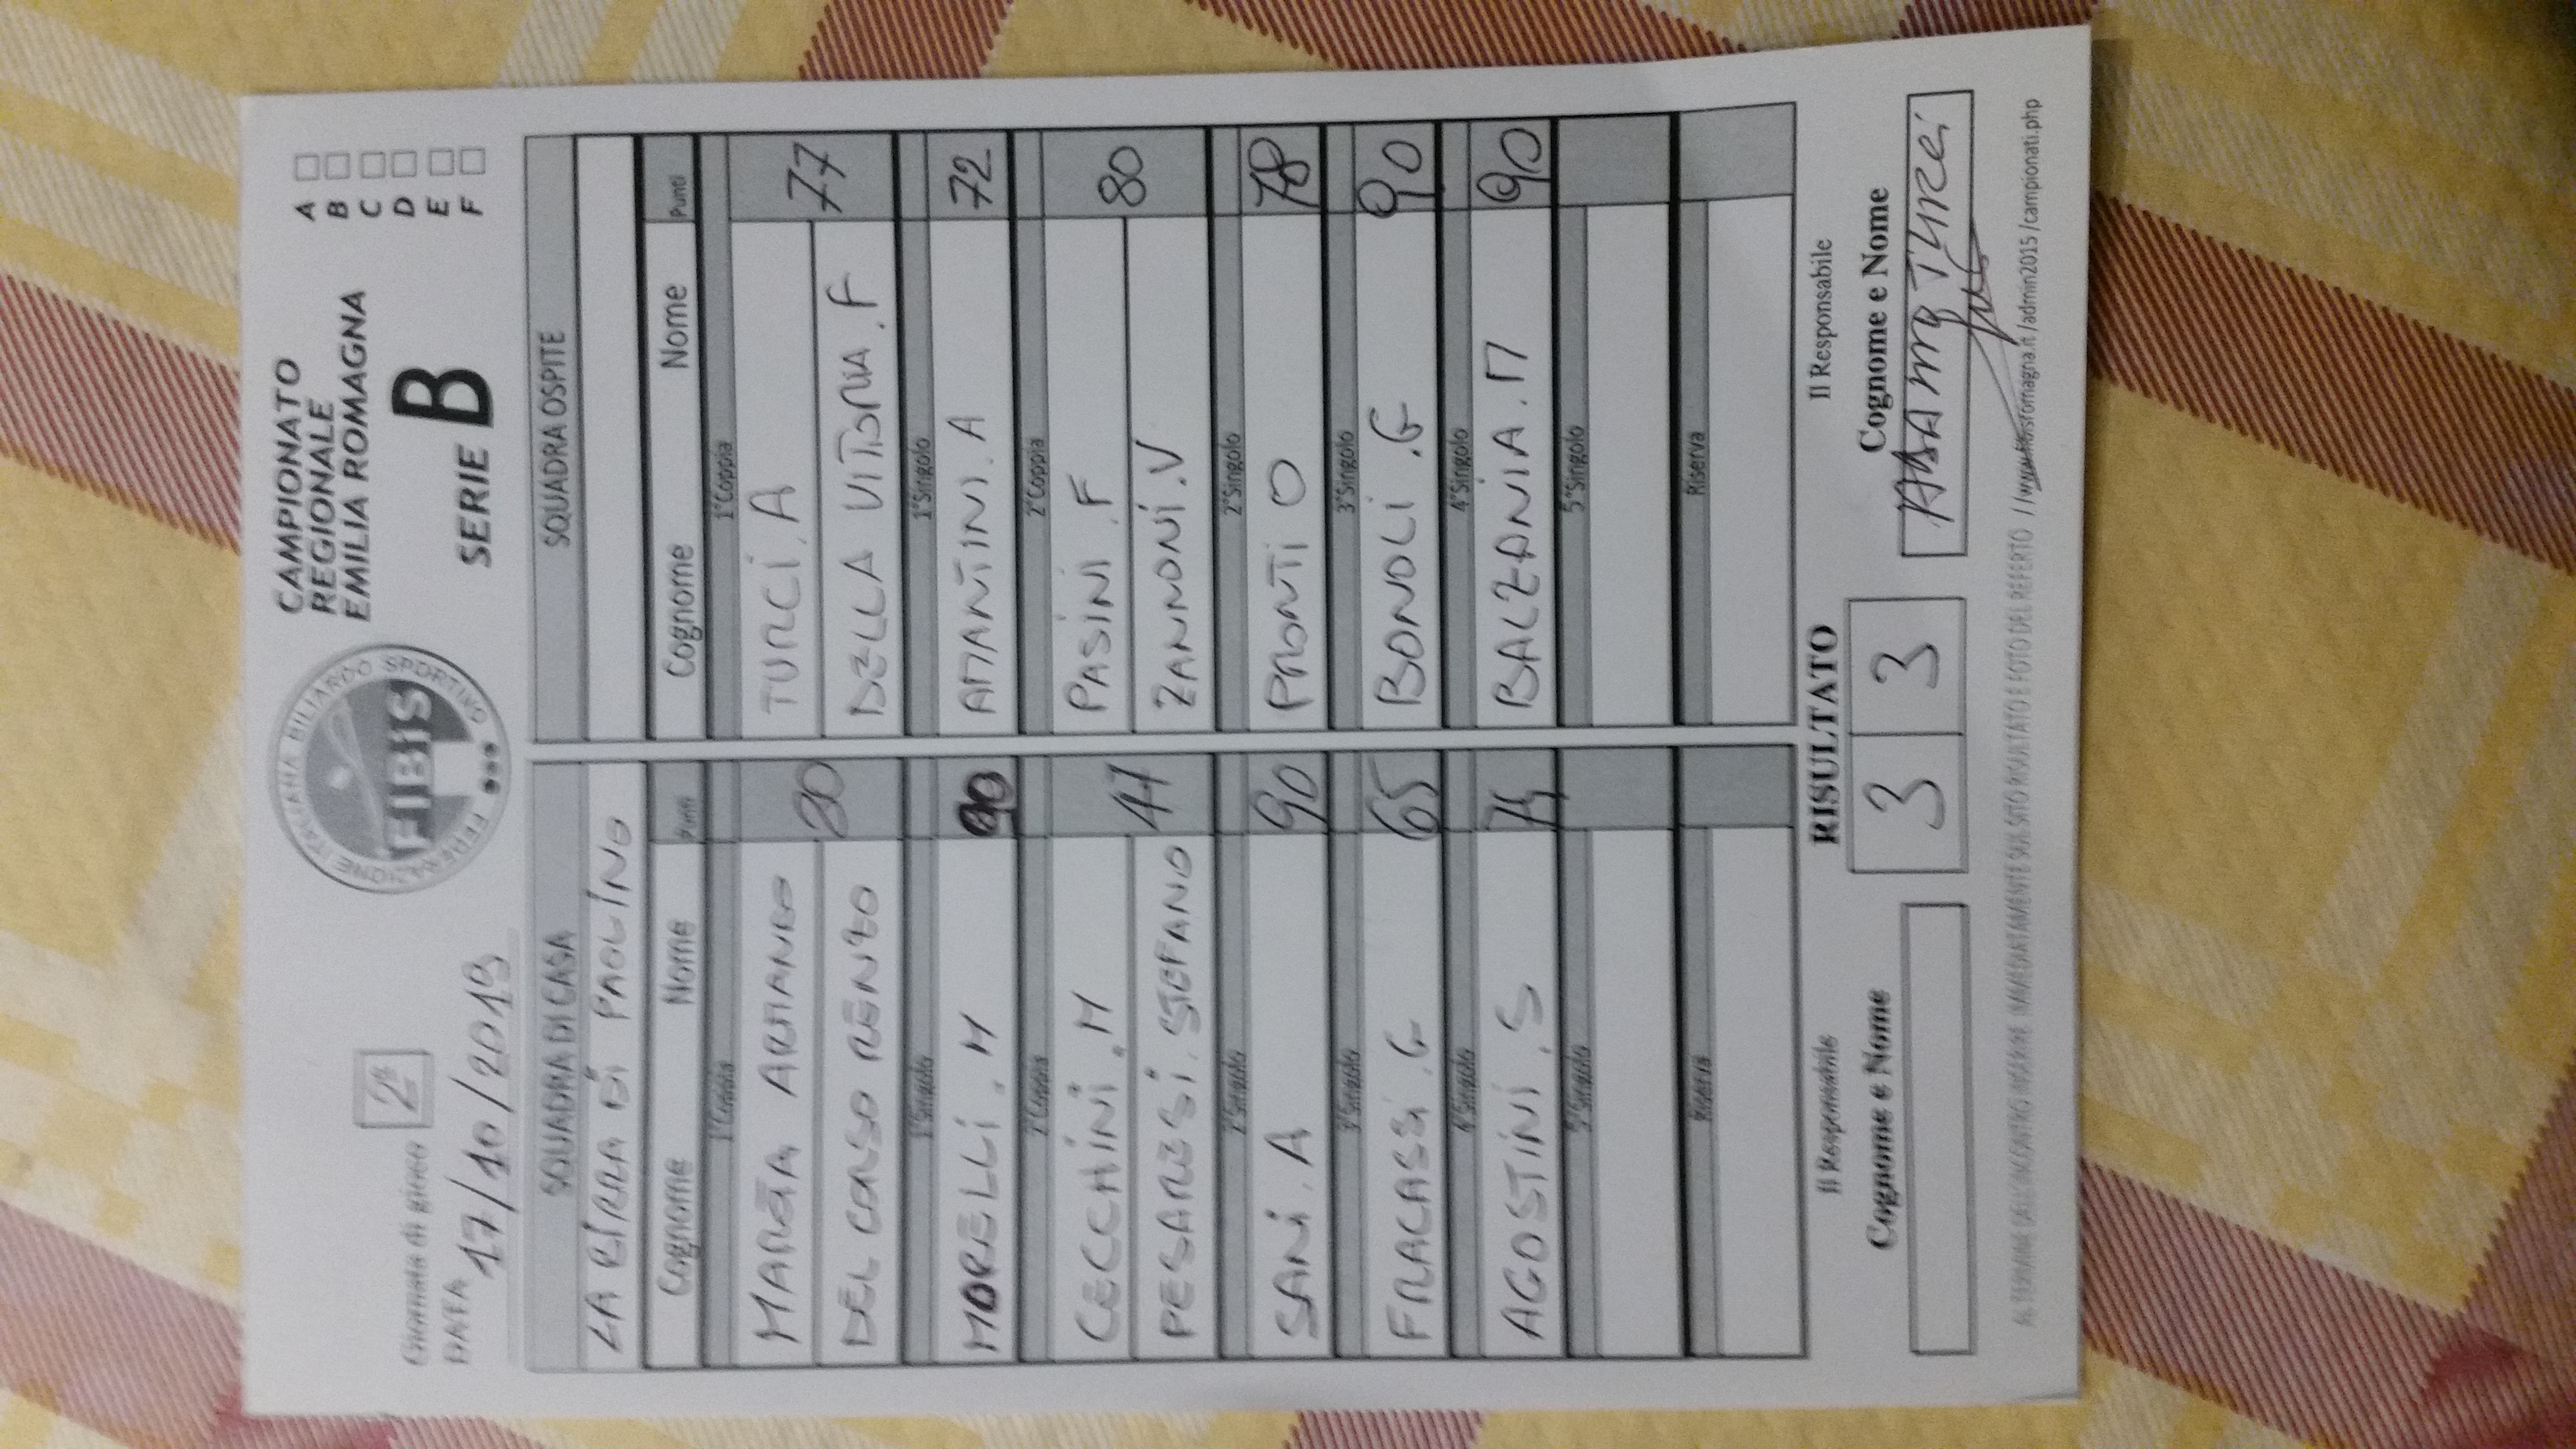 Giornata di gioco 2ª
DATA 17/10/2019
FEDERAZIONE ITALIANA BILIARDO SPORTIVO
FIBIS
CAMPIONATO
REGIONALE
EMILIA ROMAGNA
SERIE B
A
B
C
D
E
F
SQUADRA DI CASA
LA BIRRA DI PAOLINO
Cognome Nome Punti
1°Coppia
MAREA ARMANDO
DEL CORSO RENZO
80
1°Singolo
MORELLI . M 90
2°Coppia
CECCHINI . M
PESARESI . STEFANO
47
2°Singolo
SANI . A 90
3°Singolo
FRACASSI . G 65
4°Singolo
AGOSTINI . S 74
5°Singolo
Riserva
SQUADRA OSPITE
Cognome Nome Punti
1°Coppia
TURCI . A
DELLA VITTORIA . F
77
1°Singolo
AMANTINI . A 72
2°Coppia
PASINI . F
ZANNONI . V
80
2°Singolo
PRONTI O 78
3°Singolo
BONOLI . G 90
4°Singolo
BALZANIA . M 90
5°Singolo
Riserva
Il Responsabile
Cognome e Nome
RISULTATO
3 3
Il Responsabile
Cognome e Nome
Turci
AL TERMINE DELL'INCONTRO INSERIRE IMMEDIATAMENTE SUL SITO RISULTATO E FOTO DEL REFERTO //www.fibisromagna.it/admin2015/campionati.php